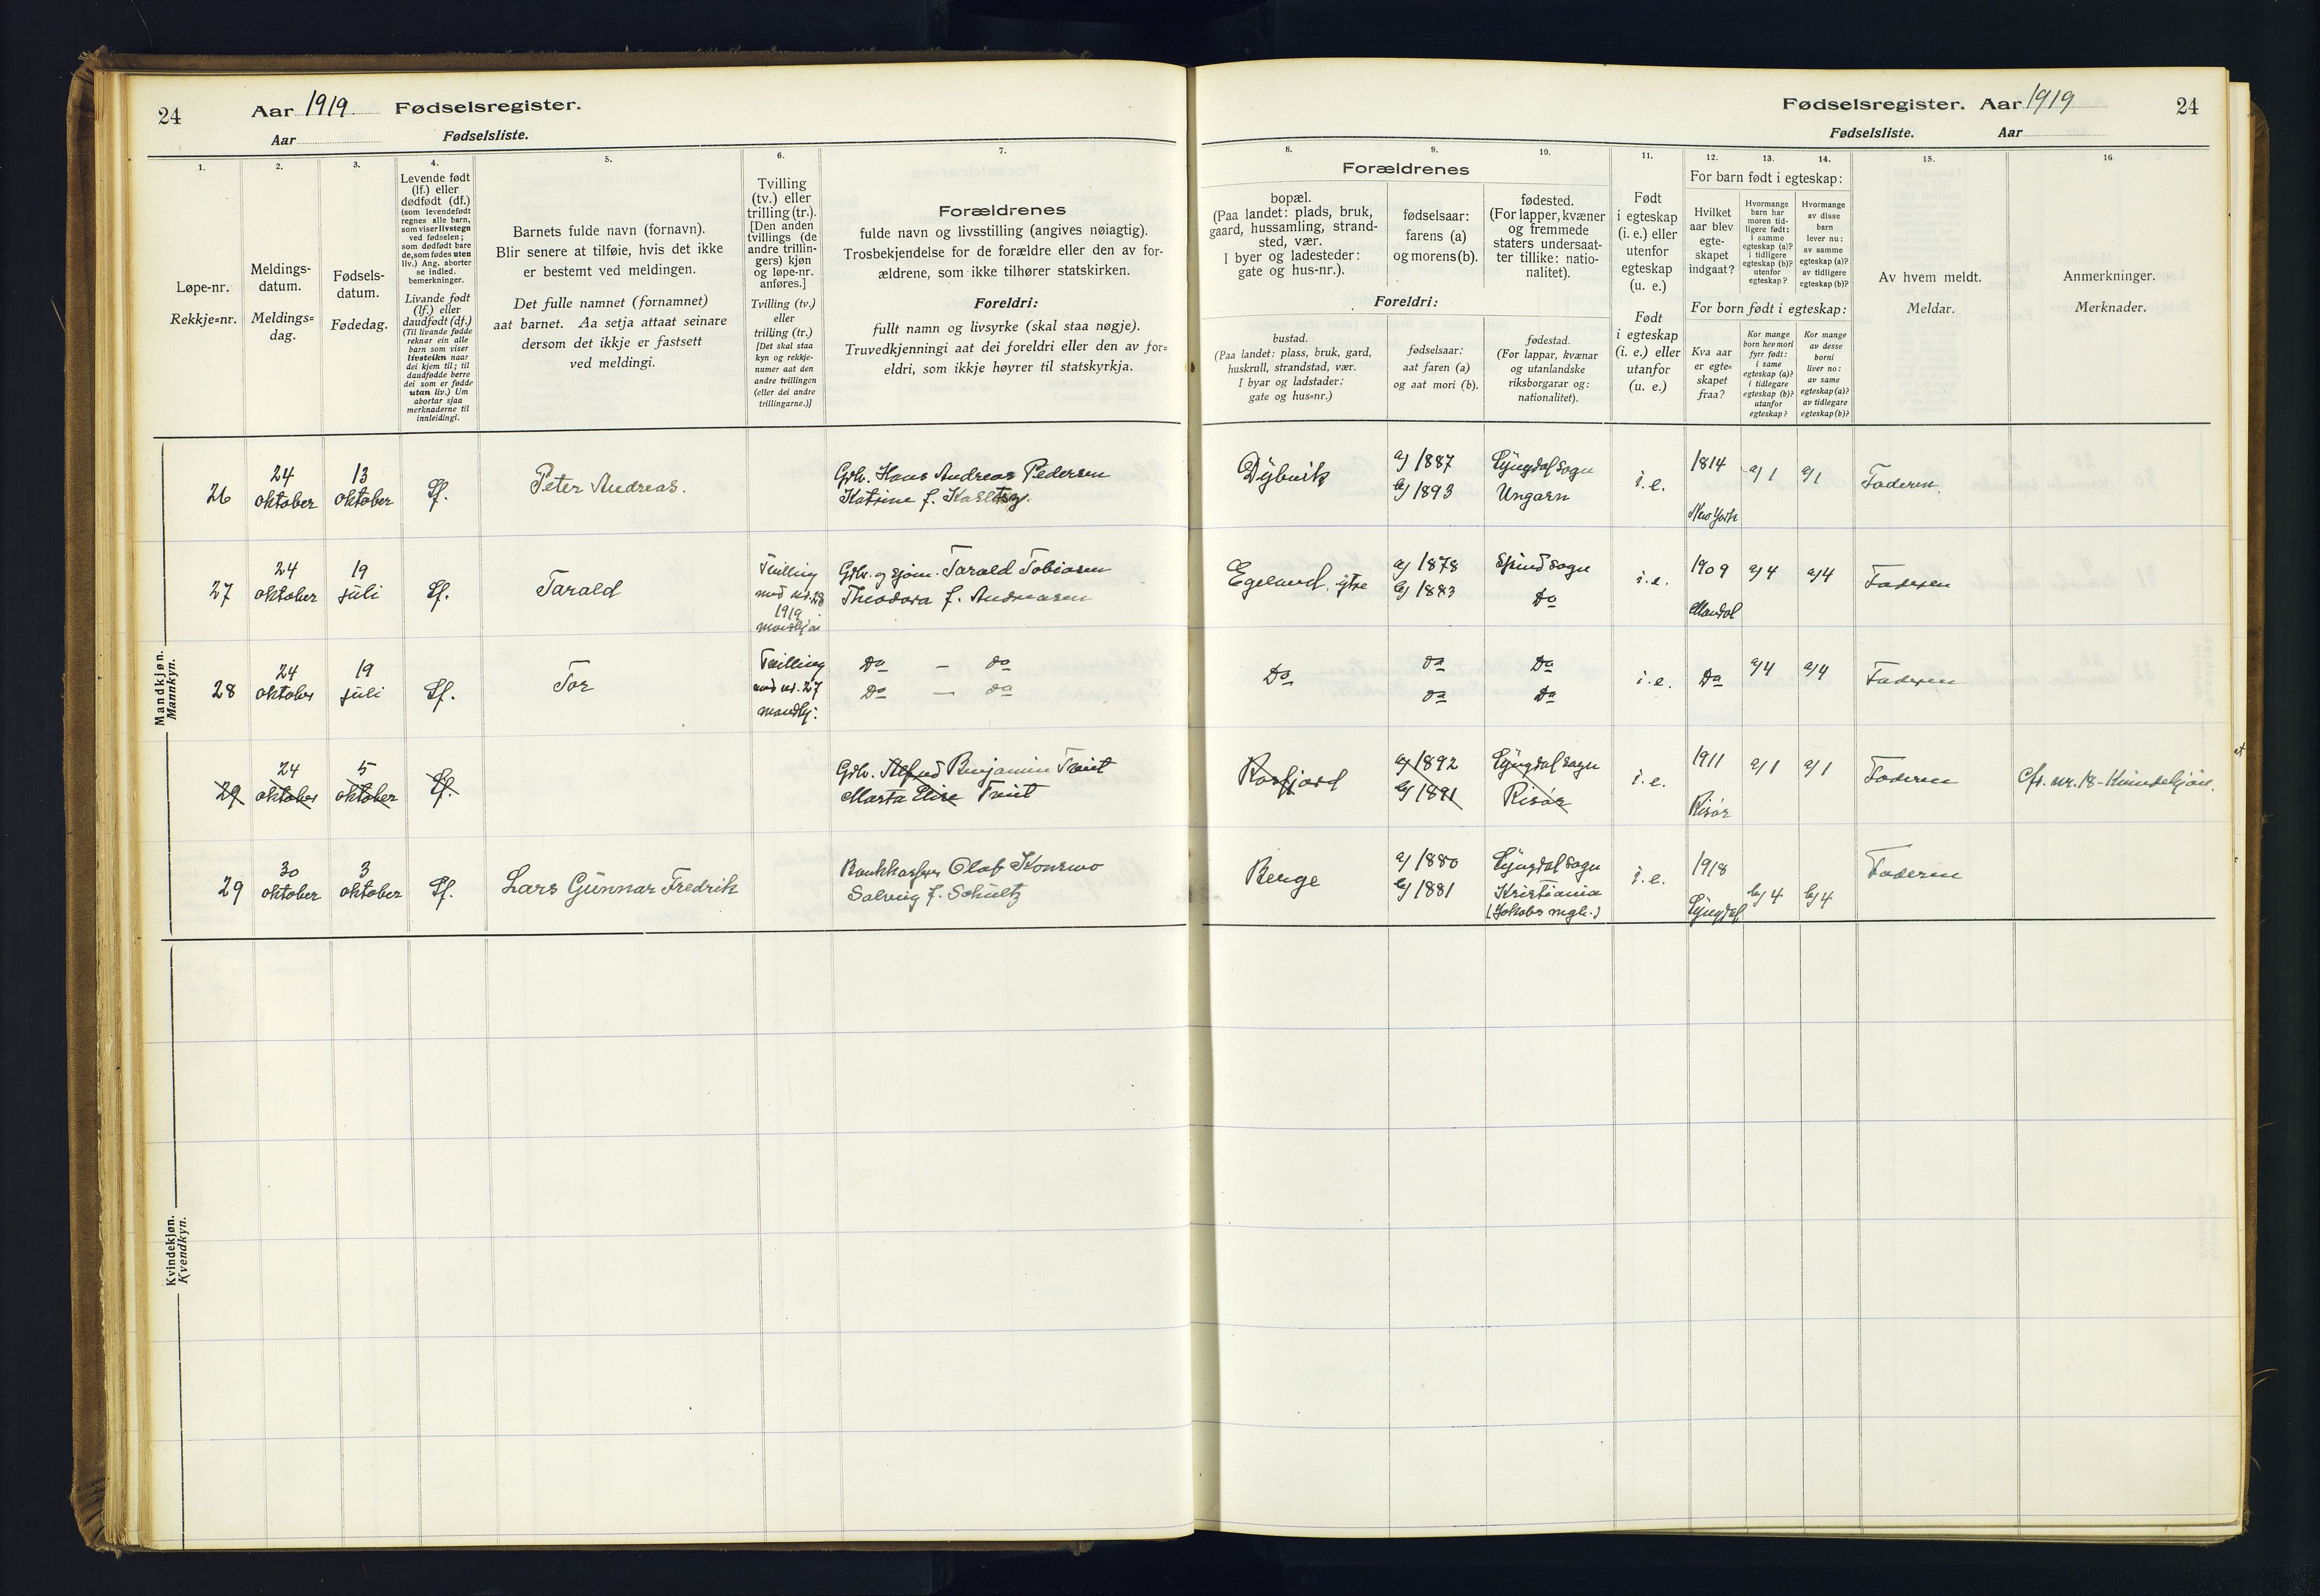 24
Aar 1919 Fødselsregister.
Aar Fødselsliste.
1.
Løpe-nr.
Rekkje=nr.
2.
Meldings-
datum.
Meldings=
dag.
3.
Fødsels-
datum.
Fødedag.
4.
Levende født
(lf.) eller
dødfødt (df.)
(som levendefødt
regnes alle barn,
som viser livstegn
ved fødselen;
som dødfødt bare
de, som fødes uten
liv.) Ang. aborter
se indled.
bemerkninger.
Livande født
(lf.) eller
daudfødt (df.)
(Til livande fødde
reknar ein alle
barn som viser
livsteikn naar
dei kjem til; til
daudfødde berre
dei som er fødde
utan liv.) Um
abortar sjaa
merknaderne til
innleidingi.
5.
Barnets fulde navn (fornavn).
Blir senere at tilføie, hvis det ikke
er bestemt ved meldingen.
Det fulle namnet (fornamnet)
aat barnet. Aa setja attaat seinare
dersom det ikkje er fastsett
ved meldingi.
6.
Tvilling
(tv.) eller
trilling (tr.).
[Den anden
tvillings (de
andre trillin-
gers) kjøn
og løpe-nr.
anføres.]
Tvilling (tv.)
eller
trilling (tr.)
[Det skal staa
kyn og rekkje-
numer aat den
andre tvillingen
(eller dei andre
trillingarne.)]
7.
Forældrenes
fulde navn og livsstilling (angives nøiagtig).
Trosbekjendelse for de forældre eller den av for-
ældrene, som ikke tilhører statskirken.
Foreldri:
fullt namn og livsyrke (skal staa nøgje).
Truvedkjenningi aat dei foreldri eller den av for=
eldri, som ikkje høyrer til statskyrkja.
Mandkjøn.
Mannkyn.
26
24
oktober
13
oktober
Lf.
Peter Andreas.
Grb. Hans Andreas Pedersen
Katrine f.
27
24
oktober
19
juli
Lf.
Tarald
Tvilling
med nr. 28
1919
mandkjøn
Grb. og sjøm. Tarald Tobiasen
Theodora f. Andreasen
28
24
oktober
19
juli
Lf.
Tor
Tvilling
med nr. 27
mandkj.
Do — do
Do — do
29
24
oktober
5
oktober
Lf.
Grb. Alfred Benjamin
Marta Elise
29
30
oktober
3
oktober
Lf.
Lars Gunnar Fredrik
Bankkasserer Olaf Konsmo
Solveig f. Schultz
Kvindekjøn.
Kvendkyn.
Fødselsregister. Aar 1919
24
Fødselsliste. Aar
8.
Forældrenes
bopæl.
(Paa landet: plads, bruk,
gaard, hussamling, strand-
sted, vær.
I byer og ladesteder:
gate og hus-nr.).
Foreldri:
bustad.
(Paa landet: plass, bruk, gard,
huskrull, strandstad, vær.
I byar og ladstader:
gate og hus=nr.)
9.
fødselsaar:
farens (a)
og morens (b).
fødselsaar:
aat faren (a)
og aat mori (b).
10.
fødested.
(For lapper, kvæner
og fremmede
staters undersaat-
ter tillike: natio-
nalitet).
fødestad.
(For lappar, kvænar
og utanlandske
riksborgarar og:
nationalitet).
11.
Født
i egteskap
(i. e.) eller
utenfor
egteskap
(u. e.)
Født
i egteskap
(i. e.) eller
utanfor
(u. e.)
12.
13.
14.
For barn født i egteskap:
Hvilket
aar blev
egte-
skapet
indgaat?
Hvormange
barn har
moren tid-
ligere født:
i samme
egteskap (a)?
i tidligere
egteskap (b)?
utenfor
egteskap?
Hvormange
av disse
barn
lever nu:
av samme
egteskap (a)?
av tidligere
egteskap (b)?
For born født i egteskap:
Kva aar
er egte=
skapet
fraa?
Kor mange
born hev mori
fyrr født:
i same
egteskap (a)?
i tidlegare
egteskap (b)?
utanfor
egteskap?
Kor mange
av desse
borni
liver no:
av same
egteskap (a)?
av tidlegare
egteskap (b)?
15.
Av hvem meldt.
Meldar.
16.
Anmerkninger.
Merknader.
Dybvik
a) 1887
b) 1893
Lyngdal sogn
Ungarn
i. e.
1814
New York
a) 1
a) 1
Faderen.
Egeland, ytre
a) 1878
b) 1883
Spind sogn
Do
i. e.
1909
Mandal
a) 4
a) 4
Faderen
Do
Do
Do
Do
Do
i. e.
Do
a) 4
a) 4
Faderen
Rosfjord
a) 1892
b) 1891
Lyngdal sogn
Risør
i. e.
1911
Risør
a) 1
a) 1
Faderen
Cfr. nr. 18 - Kvindekjøn.
Berge
a) 1880
b) 1881
Lyngdal sogn
Kristiania
(Jakobs mgh.)
i. e.
1918
Lyngdal
b) 4
b) 4
Faderen